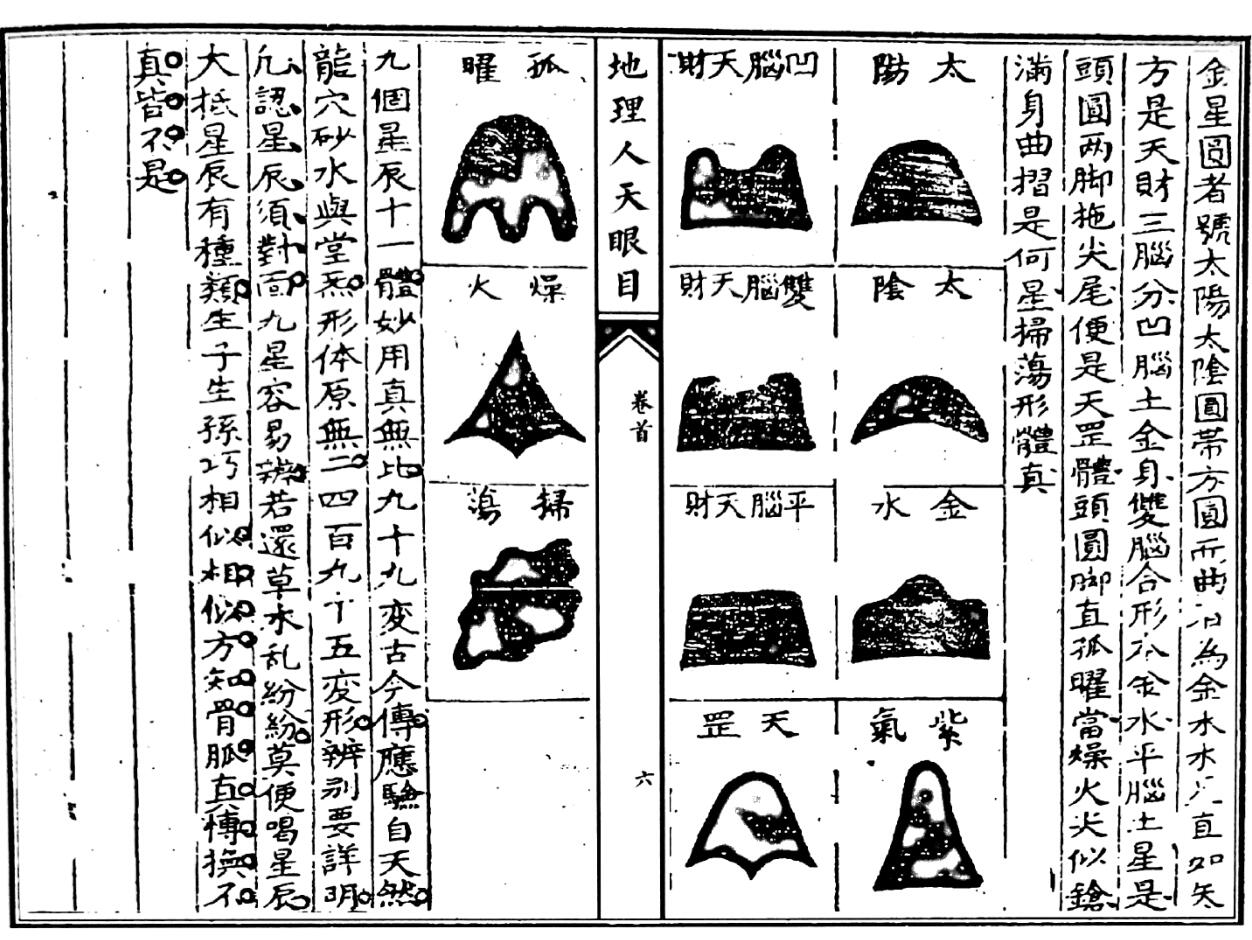 金星圓者號太陽太陰圓帶方圓而曲 為金水木 直如矢
方是天財三腦分凹腦土金身雙腦合形 金水平腦土星是
頭圓両脚拖尖尾便是天罡體頭圓脚直孤曜當燥火尖似鎗
滿身曲摺是何星掃蕩形體真
太陽
太陰
金水
紫氣
凹腦天財
雙腦天財
平腦天財
天罡
地理人天眼目
卷首
六
孤曜
燥火
掃蕩
九個星辰十一體妙用真無比九十九変古今傳應驗自天然
龍穴砂水與堂炁形体原無二四百九十五変形辨别要詳明
凢認星辰須對面九星容易辨若還草水乱紛紛莫便喝星辰
大抵星辰有種類生子生孫巧相似相似相似方知骨脈真摶撫不
真皆不是